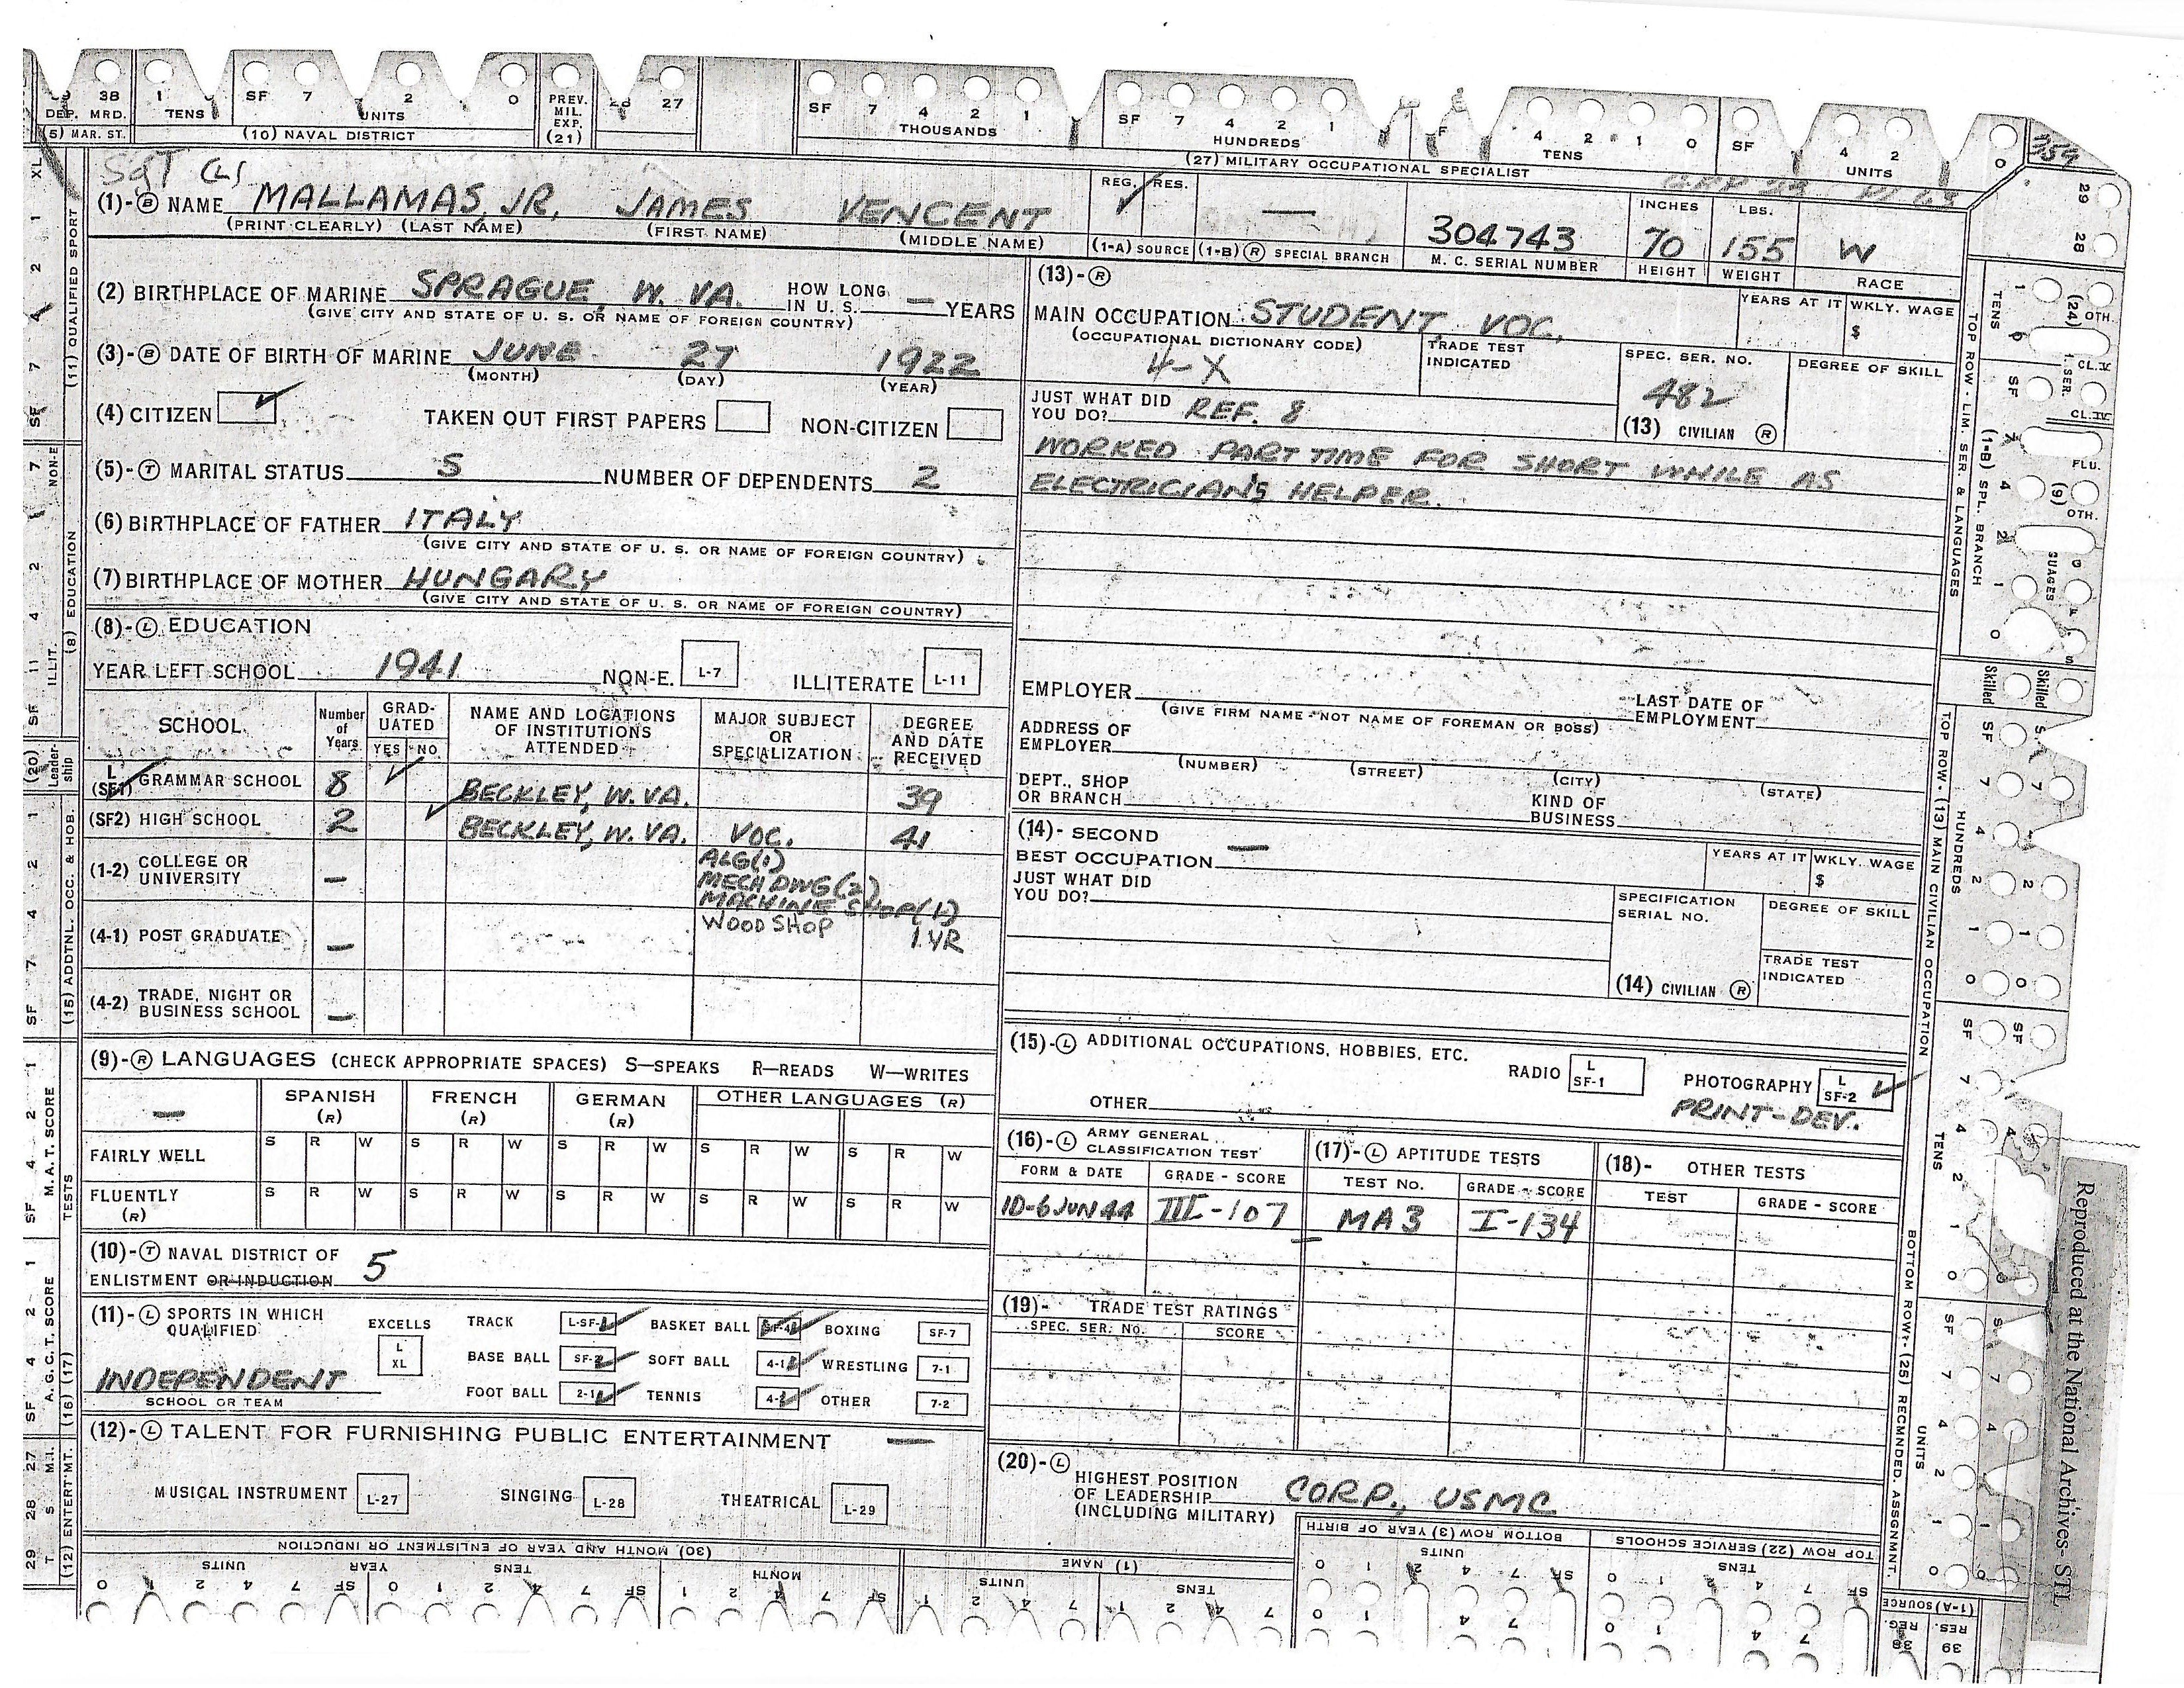 38 1 SF 7 2 0 PREV. 27 SF 7 4 2 1 SF 7 4 2 1 4 2 1 0 SF 4 2 0
DEP. MRD. TENS UNITS MIL. EXP. THOUSANDS HUNDREDS TENS UNITS
(5) MAR. ST. (10) NAVAL DISTRICT (21) (27) MILITARY OCCUPATIONAL SPECIALIST
Sgt (L)
(1)-(B) NAME MALLAMAS, JR, JAMES VENCENT
(PRINT CLEARLY) (LAST NAME) (FIRST NAME) (MIDDLE NAME)
REG. RES.
(1-A) SOURCE (1-B) (R) SPECIAL BRANCH
304743
M. C. SERIAL NUMBER
INCHES LBS.
70 155 W
HEIGHT WEIGHT RACE
(2) BIRTHPLACE OF MARINE SPRAGUE, W. VA. HOW LONG IN U. S. — YEARS
(GIVE CITY AND STATE OF U. S. OR NAME OF FOREIGN COUNTRY)
(3)-(B) DATE OF BIRTH OF MARINE JUNE 27 1922
(MONTH) (DAY) (YEAR)
(4) CITIZEN TAKEN OUT FIRST PAPERS NON-CITIZEN
(5)-(T) MARITAL STATUS S NUMBER OF DEPENDENTS 2
(6) BIRTHPLACE OF FATHER ITALY
(GIVE CITY AND STATE OF U. S. OR NAME OF FOREIGN COUNTRY)
(7) BIRTHPLACE OF MOTHER HUNGARY
(GIVE CITY AND STATE OF U. S. OR NAME OF FOREIGN COUNTRY)
(8)-(L) EDUCATION
YEAR LEFT SCHOOL 1941 NON-E. L-7 ILLITERATE L-11
SCHOOL Number of Years GRADUATED YES NO NAME AND LOCATIONS OF INSTITUTIONS ATTENDED MAJOR SUBJECT OR SPECIALIZATION DEGREE AND DATE RECEIVED
L (SF1) GRAMMAR SCHOOL 8 BECKLEY, W. VA. 39
(SF2) HIGH SCHOOL 2 BECKLEY, W. VA. VOC. 41
ALG(1)
(1-2) COLLEGE OR UNIVERSITY — MECH DWG(2)
MACHINE SHOP(1)
(4-1) POST GRADUATE — WOOD SHOP 1 YR
(4-2) TRADE, NIGHT OR BUSINESS SCHOOL —
(9)-(R) LANGUAGES (CHECK APPROPRIATE SPACES) S—SPEAKS R—READS W—WRITES
— SPANISH (R) FRENCH (R) GERMAN (R) OTHER LANGUAGES (R)
FAIRLY WELL S R W S R W S R W S R W S R W
FLUENTLY (R) S R W S R W S R W S R W S R W
(10)-(T) NAVAL DISTRICT OF
ENLISTMENT OR INDUCTION 5
(11)-(L) SPORTS IN WHICH QUALIFIED EXCELLS L XL
TRACK L-SF-1 BASKET BALL SF-4 BOXING SF-7
BASE BALL SF-2 SOFT BALL 4-1 WRESTLING 7-1
FOOT BALL 2-1 TENNIS 4-2 OTHER 7-2
INDEPENDENT
SCHOOL OR TEAM
(12)-(L) TALENT FOR FURNISHING PUBLIC ENTERTAINMENT —
MUSICAL INSTRUMENT L-27 SINGING L-28 THEATRICAL L-29
(13)-(R)
MAIN OCCUPATION STUDENT, VOC. YEARS AT IT WKLY. WAGE $
(OCCUPATIONAL DICTIONARY CODE) TRADE TEST INDICATED SPEC. SER. NO. DEGREE OF SKILL
4-X 482
JUST WHAT DID YOU DO? REF. 8 (13) CIVILIAN (R)
WORKED PART TIME FOR SHORT WHILE AS
ELECTRICIAN'S HELPER.
EMPLOYER LAST DATE OF EMPLOYMENT
(GIVE FIRM NAME - NOT NAME OF FOREMAN OR BOSS)
ADDRESS OF EMPLOYER
(NUMBER) (STREET) (CITY) (STATE)
DEPT., SHOP OR BRANCH KIND OF BUSINESS
(14)- SECOND
BEST OCCUPATION — YEARS AT IT WKLY. WAGE $
JUST WHAT DID YOU DO? SPECIFICATION SERIAL NO. DEGREE OF SKILL
TRADE TEST INDICATED
(14) CIVILIAN (R)
(15)-(L) ADDITIONAL OCCUPATIONS, HOBBIES, ETC.
RADIO L SF-1 PHOTOGRAPHY L SF-2
OTHER PRINT-DEV.
(16)-(L) ARMY GENERAL CLASSIFICATION TEST (17)-(L) APTITUDE TESTS (18)- OTHER TESTS
FORM & DATE GRADE - SCORE TEST No. GRADE - SCORE TEST GRADE - SCORE
1D-6 JUN 44 III-107 MA3 I-134
(19)- TRADE TEST RATINGS
SPEC. SER. No. SCORE
(20)-(L)
HIGHEST POSITION
OF LEADERSHIP CORP., USMC
(INCLUDING MILITARY)
(30) MONTH AND YEAR OF ENLISTMENT OR INDUCTION
UNITS YEAR TENS MONTH
(1) NAME
UNITS TENS
BOTTOM ROW (3) YEAR OF BIRTH
UNITS
TOP ROW (22) SERVICE SCHOOLS
TENS
(1-A) SOURCE
REG. RES.
38 39
(11) QUALIFIED SPORT
(8) EDUCATION
NON-E
ILLIT.
(20) Leadership
(15) ADDTNL. OCC. & HOB.
M. A. T. SCORE
TESTS
A. G. C. T. SCORE
(16) (17)
(12) ENTERT'MT.
29 28 27
T S M.I.
TOP ROW - LIM. SER. & LANGUAGES
(1-B) SPL. BRANCH
TENS
(24) OTH.
CL. IV
FLU.
(9) OTH.
Skilled
TOP ROW - (13) MAIN CIVILIAN OCCUPATION
HUNDREDS
TENS
UNITS
BOTTOM ROW - (25) RECMNDED. ASSGNMNT.
Reproduced at the National Archives- STL